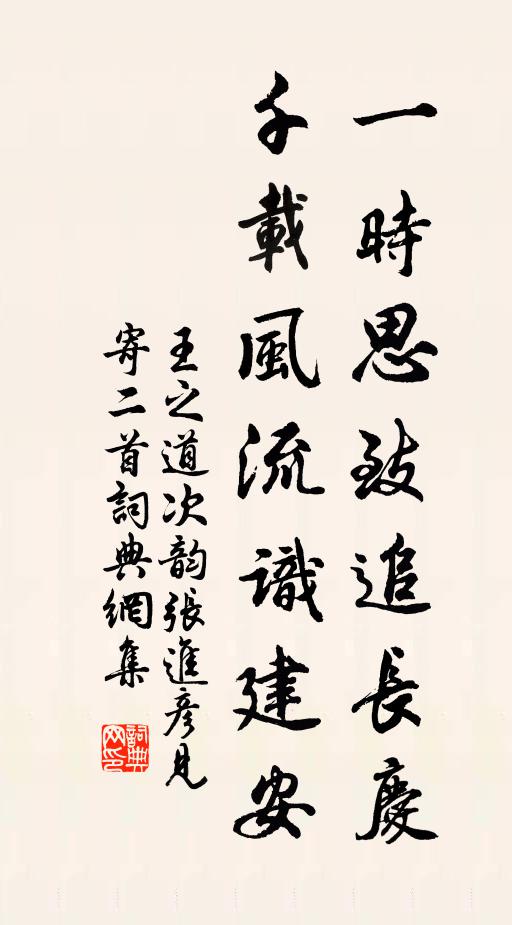 一時思致追長慶
千載風流識建安
王之道次韵張進彦見
寄二首詞典網集
詞典網印